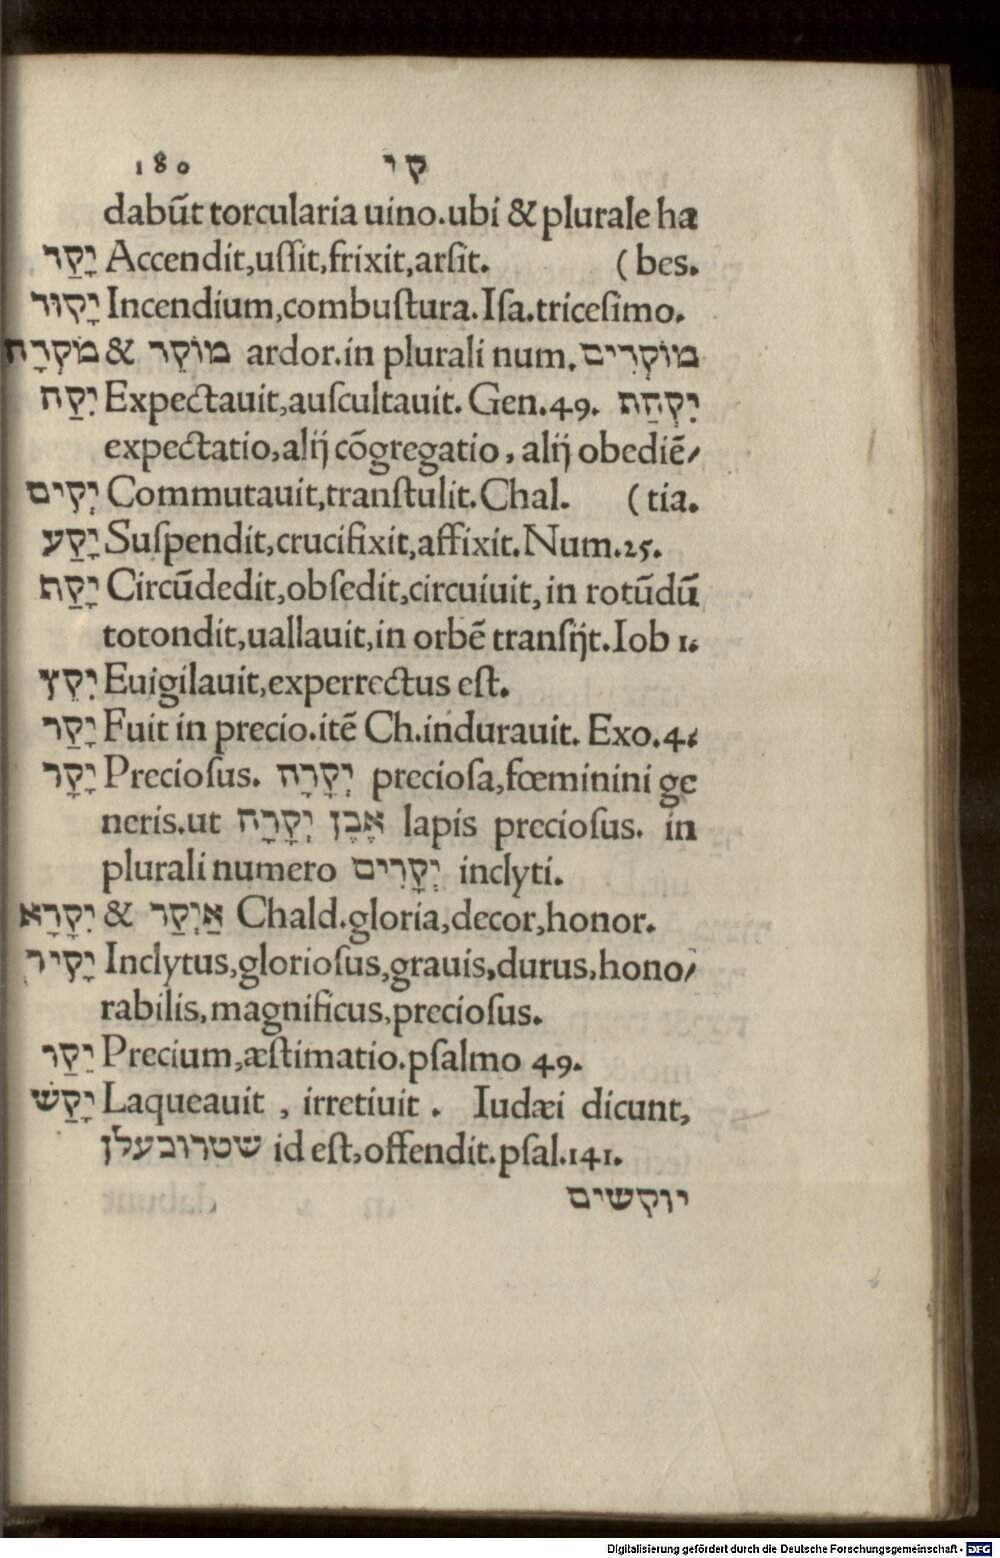 180 קי
dabũt torcularia uino.ubi & plurale ha
יָקַר Accendit,uſſit,frixit,arſit. (bes.
יָקוּר Incendium,combuſtura.Iſa.triceſimo.
מֹקְרָה & מוֹקֵר ardor.in plurali num. מוֹקְרִים
יִקַּח Expectauit,auſcultauit. Gen.49. יִקְּחַת
expectatio,alij cõgregatio, alij obediẽ/
יְקִים Commutauit,tranſtulit.Chal. (tia.
יָקַע Suſpendit,crucifixit,affixit.Num.25.
יָקַת Circũdedit,obſedit,circuiuit,in rotũdũ
totondit,uallauit,in orbẽ tranſijt.Iob 1.
יִקֵץ Euigilauit,experrectus eſt.
יָקַר Fuit in precio.itẽ Ch.indurauit. Exo.4.
יָקָר Precioſus. יְקָרָה precioſa,fœminini ge
neris.ut אֶבֶן יְקָרָה lapis precioſus. in
plurali numero יְקָרִים inclyti.
יִקָרָא & אַיְקַר Chald.gloria,decor,honor.
יָקִיר Inclytus,glorioſus,grauis,durus,hono/
rabilis,magnificus,precioſus.
יֵקַר Precium,æſtimatio.pſalmo 49.
יָקַשׁ Laqueauit , irretiuit . Iudæi dicunt,
שטרובעלן id eſt,offendit.pſal.141.
יוקשים
Digitalisierung gefördert durch die Deutsche Forschungsgemeinschaft - DFG